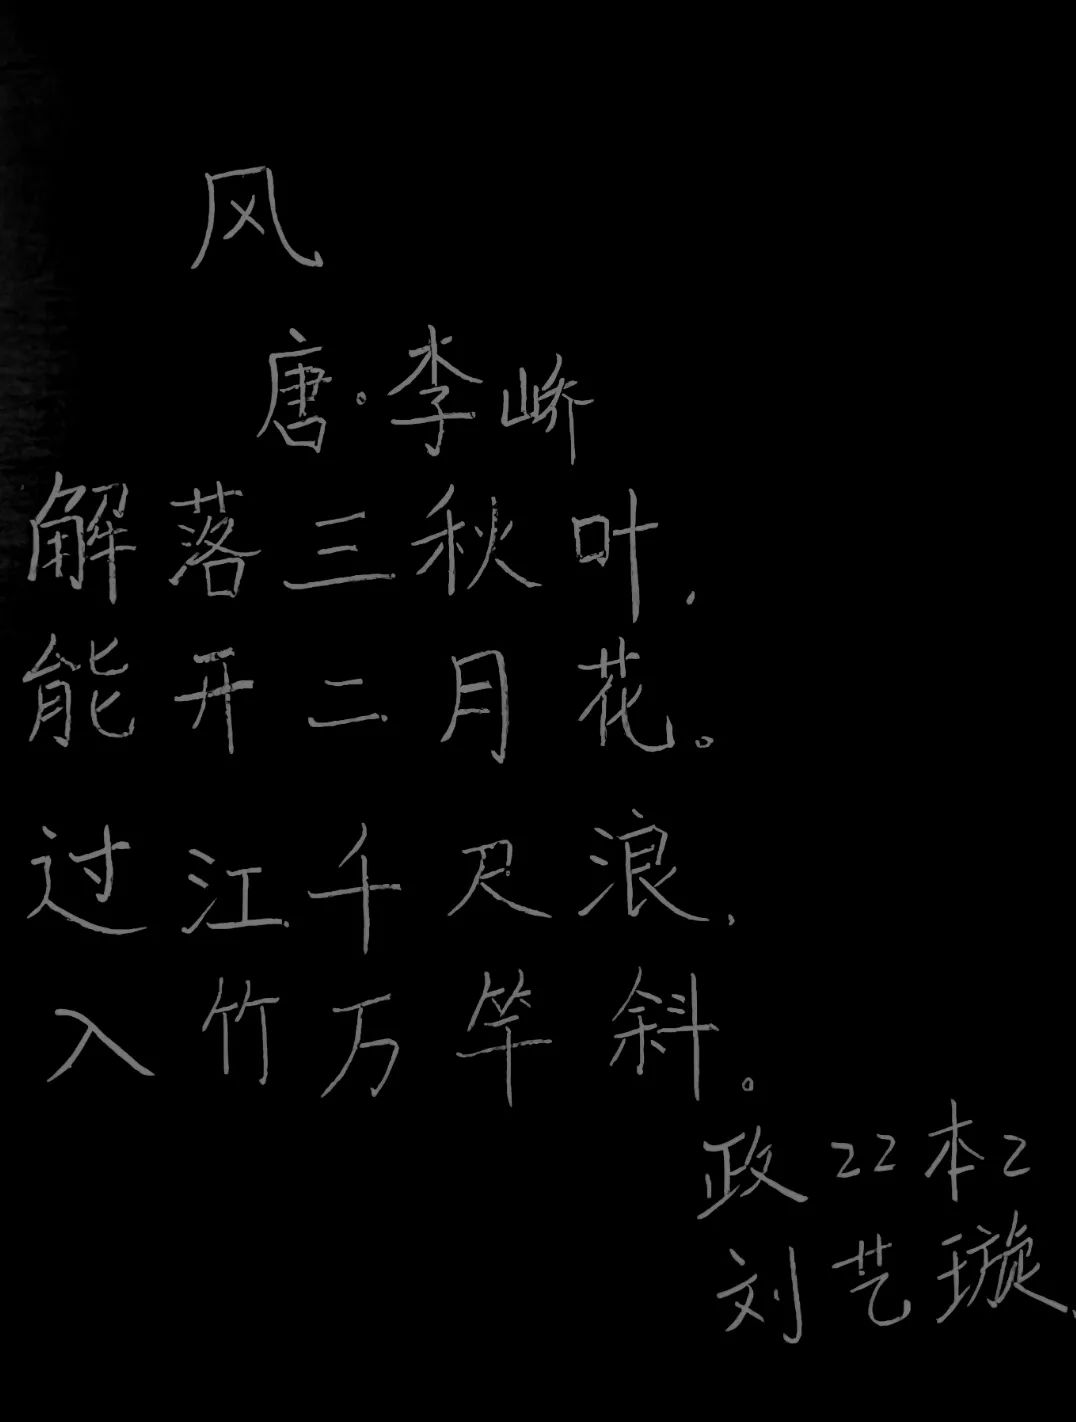 风
唐·李峤
解落三秋叶,
能开二月花。
过江千尺浪,
入竹万竿斜。
政22本2
刘艺璇